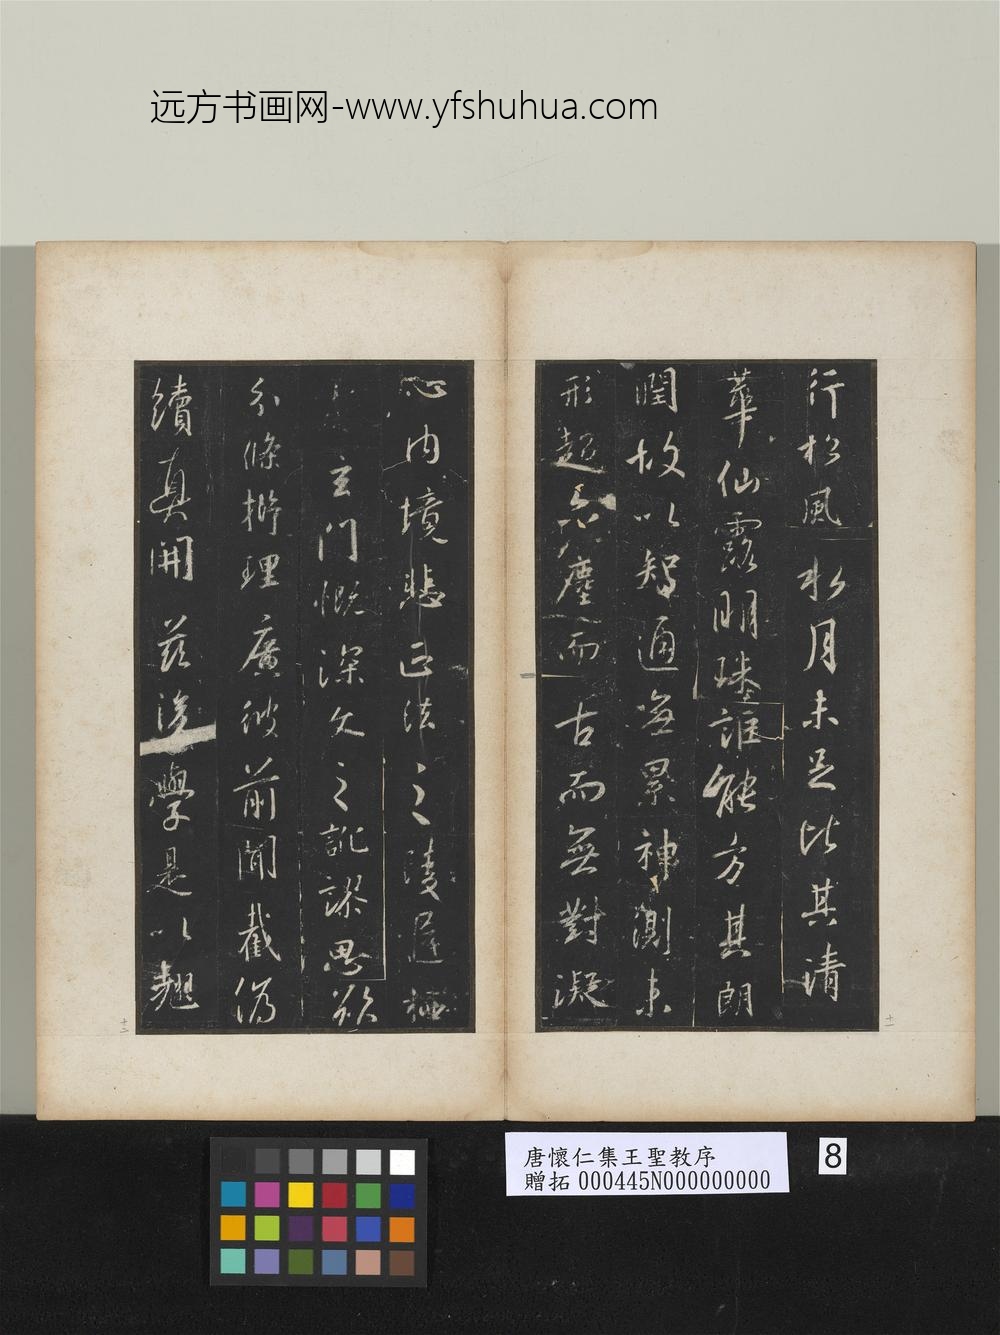 远方书画网-www.yfshuhua.com
行松風水月未足比其清
華仙露明珠詎能方其朗
潤故以智通無累神測未
形超六塵而古而無對凝
心內境悲正法之陵遲栖
玄門慨深文之訛謬思欲
分條析理廣彼前聞截偽
續真開茲後學是以翹
十一
十二
唐懷仁集王聖教序
贈拓 000445N000000000
8